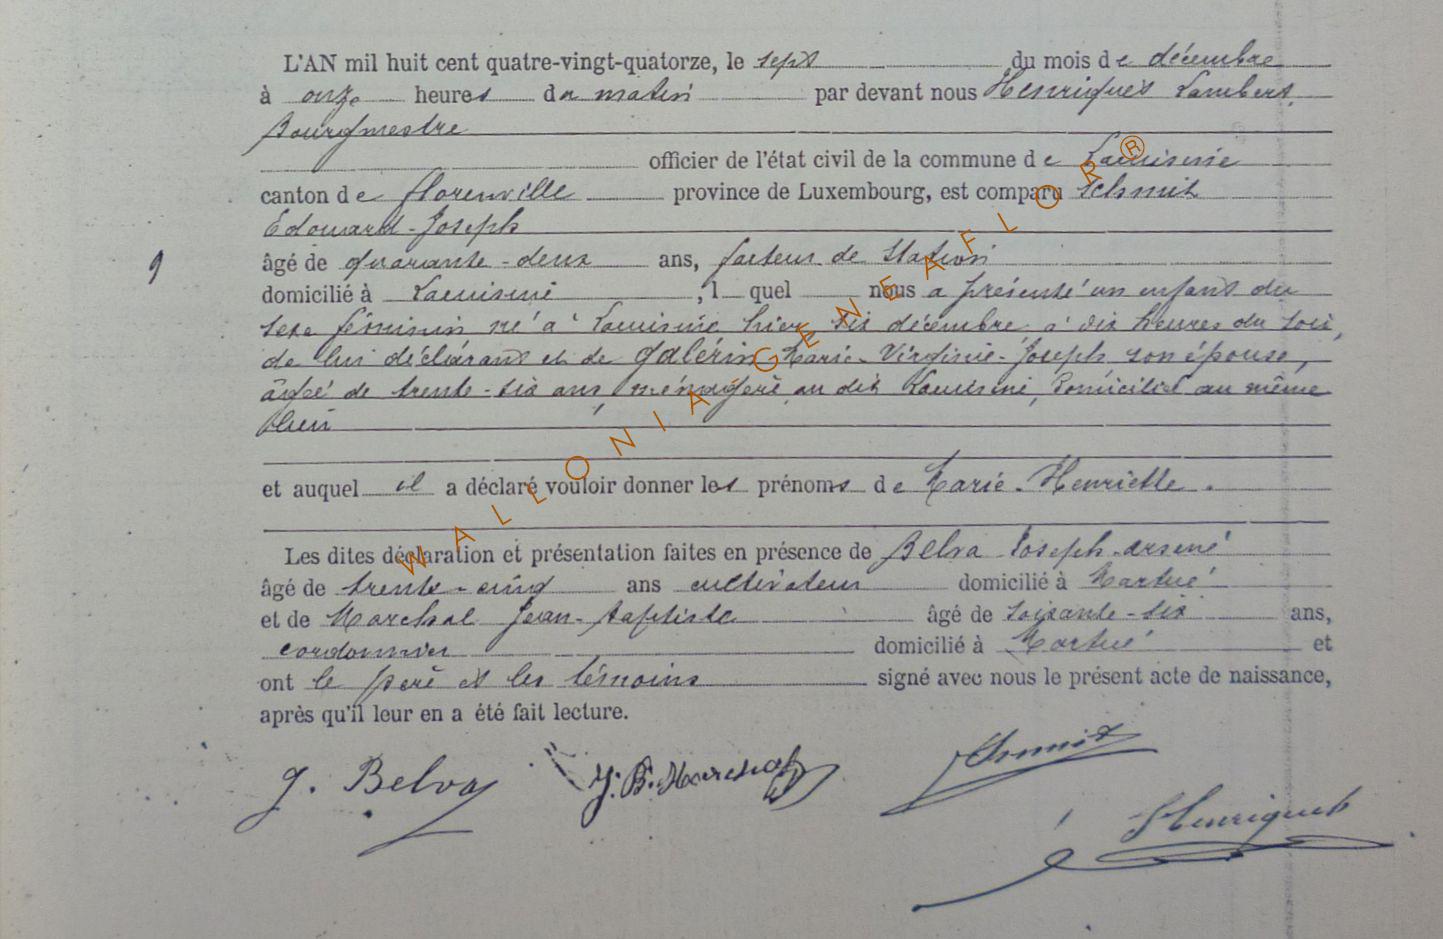 L'AN mil huit cent quatre-vingt-quatorze, le sept du mois de décembre
à onze heures du matin par devant nous Henriquet Lambert,
Bourgmestre
officier de l'état civil de la commune de Lacuisine
canton de florenville province de Luxembourg, est comparu Schmit
Edouard-Joseph
9 âgé de quarante-deux ans, facteur de Station
domicilié à Lacuisine, l quel nous a présenté un enfant du
sexe féminin né à Lacuisine hier six décembre à dix heures du soir,
de lui déclarant et de Galérin Marie-Virginie-Joseph son épouse,
âgée de trente-six ans, ménagère au dit Lacuisine, domiciliée au même
lieu
et auquel il a déclaré vouloir donner les prénoms de Marie-Henriette.
Les dites déclaration et présentation faites en présence de Belva Joseph-arsène
âgé de trente-cinq ans cultivateur domicilié à Martué
et de Marchal Jean-Baptiste âgé de soixante-six ans,
cordonnier domicilié à Martué et
ont le père et les témoins signé avec nous le présent acte de naissance,
après qu'il leur en a été fait lecture.
J. Belva J. B. Marchal Schmit
Henriquet
WALLONIA GENEAFLOR®